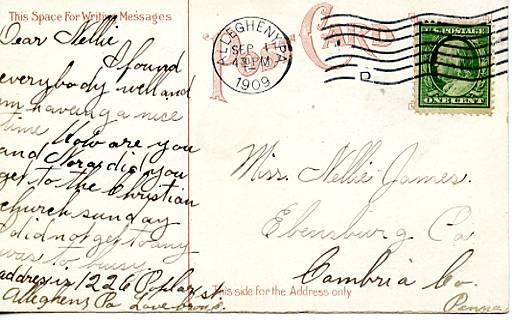 This Space For Writing Messages
POST CARD
ALLEGHENY, PA
SEP 1
430PM
1909
D
U.S. POSTAGE
ONE CENT
Dear Nellie
I found
everybody well and
am haveing a nice
time how are you
and Nora did you
get to the Christian
church sunday
I did not get to any
was to busy
address is 1226 Poplar st.
Allegheny Pa
Miss. Nellie James.
Ebensburg Pa
Cambria Co.
Penna
This side for the Address only